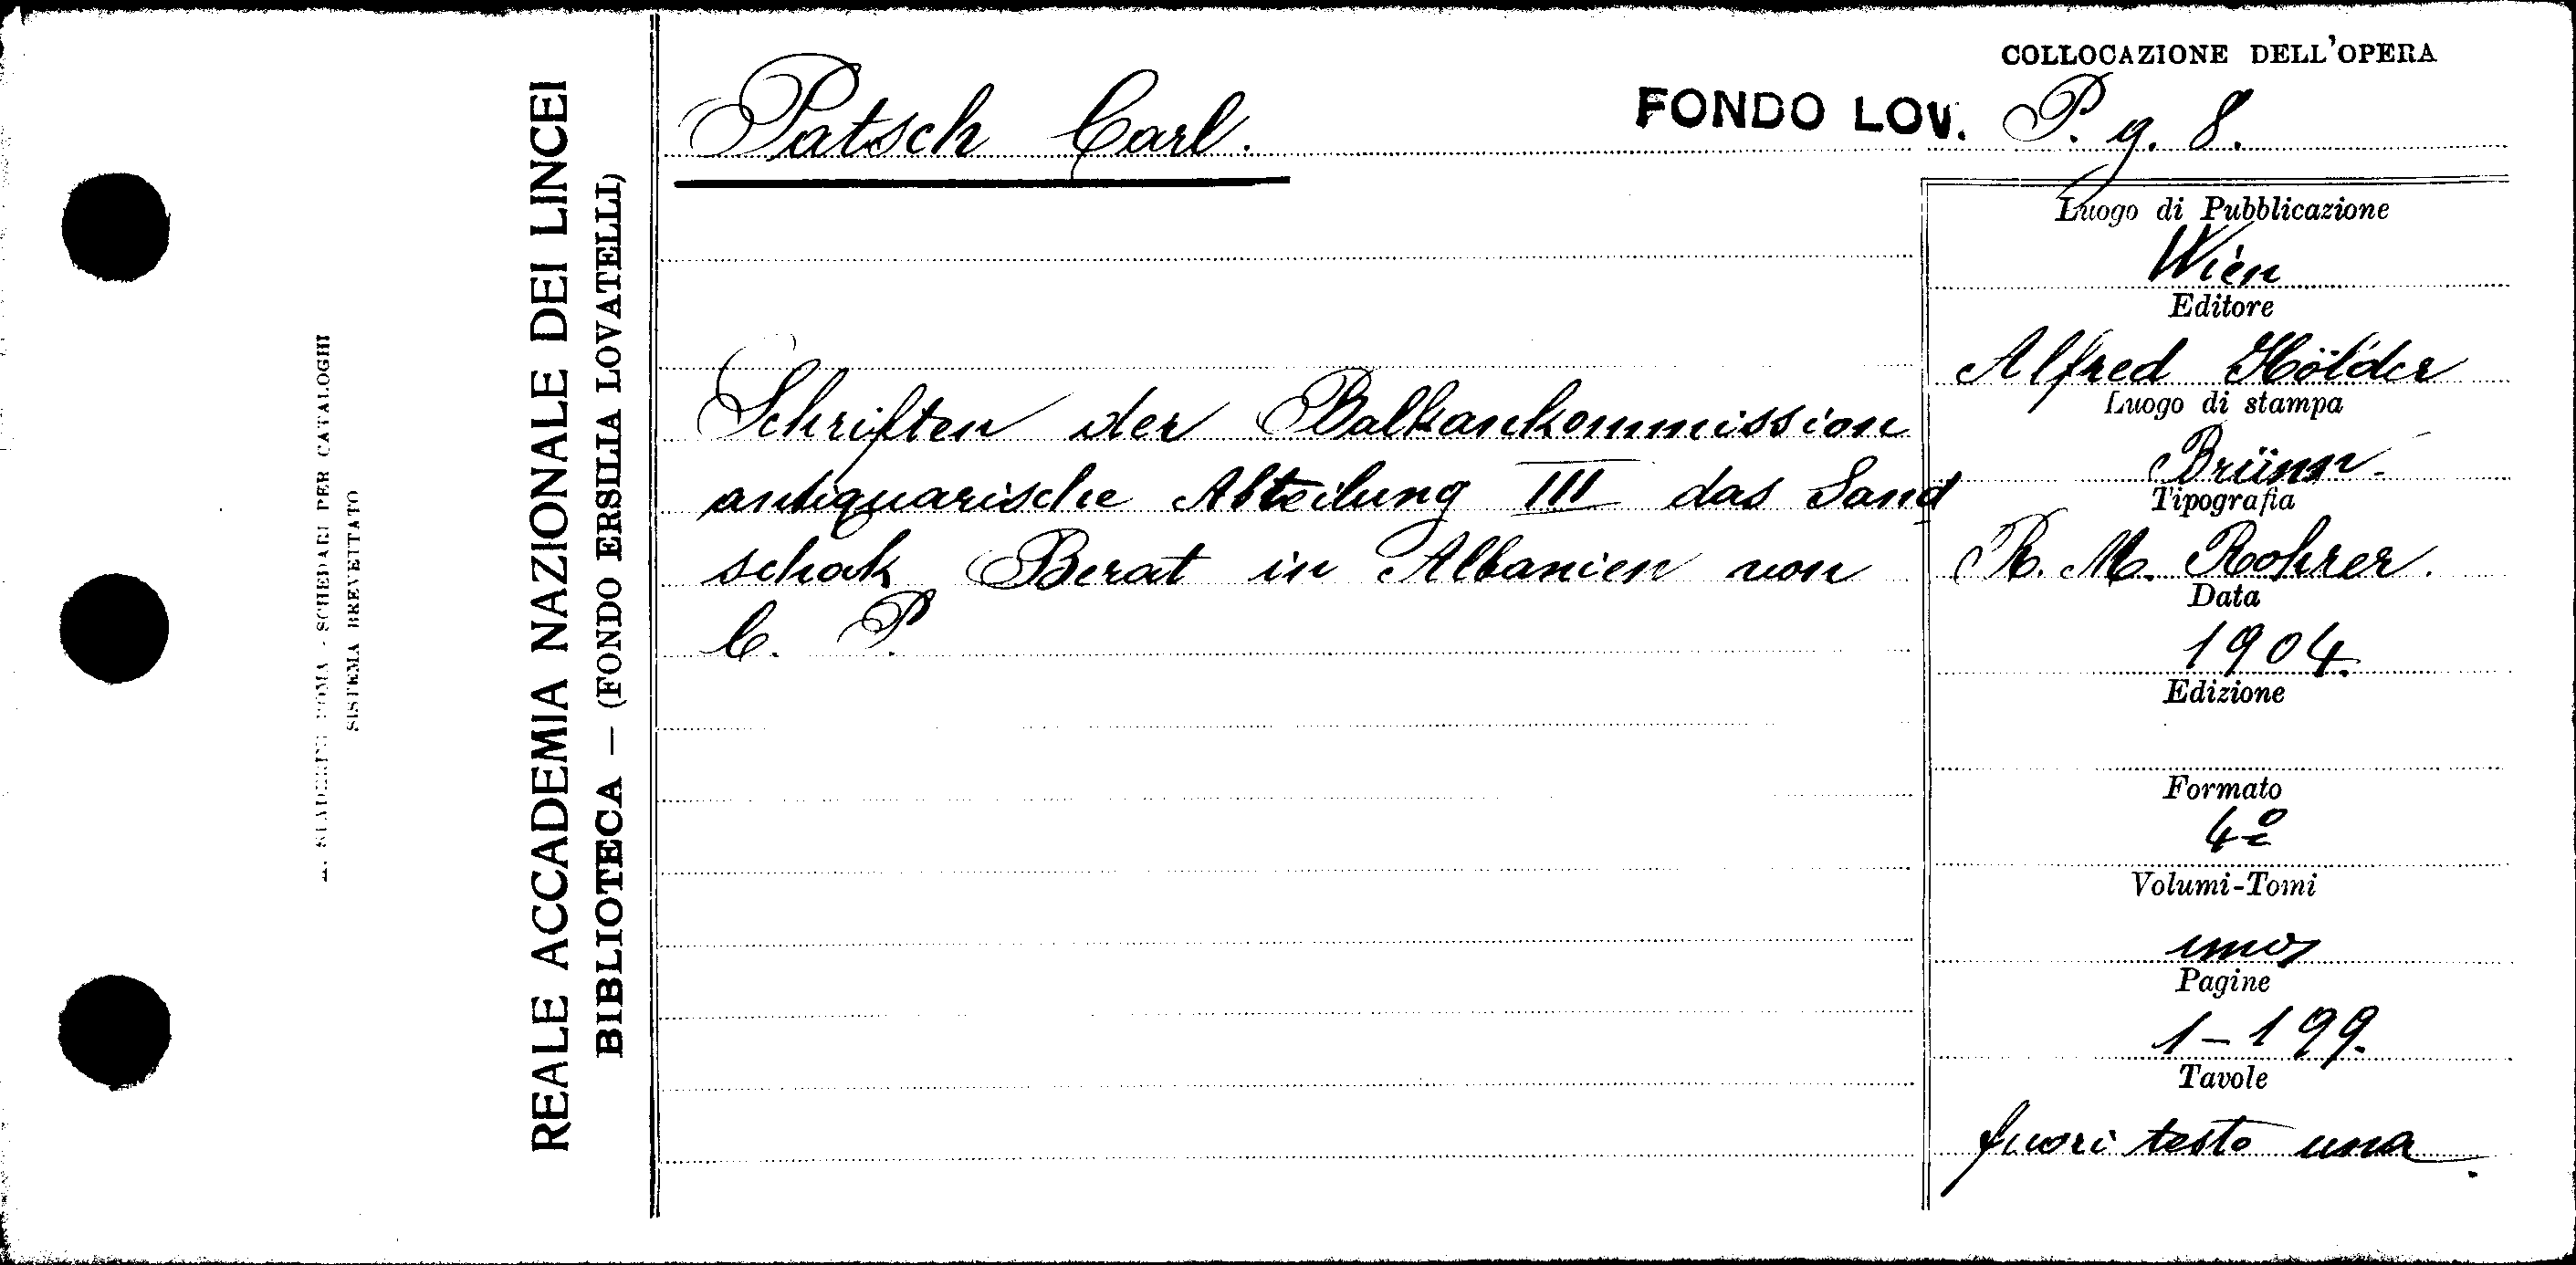 COLLOCAZIONE DELL'OPERA
Patsch Carl.
FONDO LOV. P. g. 8.
Luogo di Pubblicazione
Wien
Editore
Alfred Hölder
Luogo di stampa
Brünn.
Tipografia
R. M. Rohrer.
Data
1904.
Edizione
Formato
4º
Volumi-Tomi
uno
Pagine
1-199.
Tavole
fuori testo una.
Schriften der Balkankommission
antiquarische Abteilung III das Sand
schak Berat in Albanien von
C. P.
REALE ACCADEMIA NAZIONALE DEI LINCEI
BIBLIOTECA — (FONDO ERSILIA LOVATELLI)
ROMA - SCHEDARI PER CATALOGHI
SISTEMA BREVETTATO